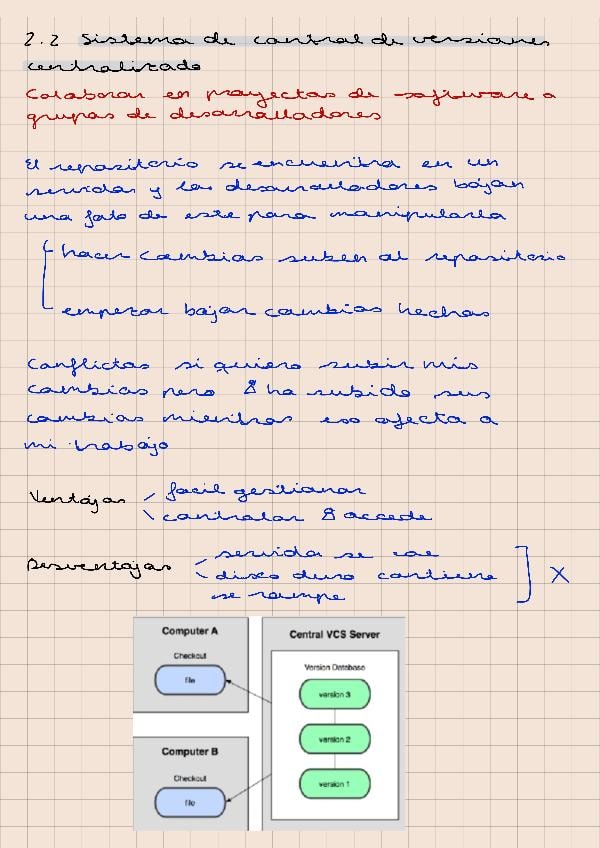 2.2 Sistema de control de versiones
centralizado
Colaborar en proyectos de software a
grupos de desarrolladores
El repositorio se encuentra en un
servidor y los desarrolladores bajan
una foto de este para manipularla
hacer cambios suben al repositorio
empezar bajar cambios hechos
Conflictos si quiero subir mis
cambios pero ha subido sus
cambios mientras eso afecta a
mi trabajo
Ventajas
facil gestionar
controlar accede
Desventajas
servidor se cae
disco duro contiene
se rompe
X
Computer A
Checkout
file
Computer B
Checkout
file
Central VCS Server
Version Database
version 3
version 2
version 1